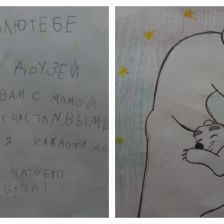 ЛАЮ ТЕБЕ
ДРУЗЕЙ
ВАМ С МАМОЙ
СЧАСТЛИВЫМ
Я КАЖДОМУ
ЧАТОЕГО